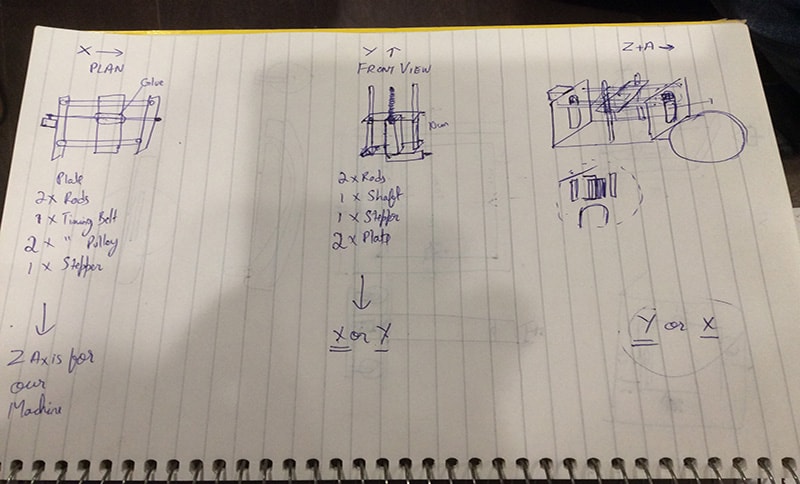 X →
PLAN
Glue
Plate
2 x Rods
1 x Timing Belt
2 x " Pulley
1 x Stepper
↓
Z Axis for
our
Machine
Y ↑
FRONT VIEW
10cm
2 x Rods
1 x Shaft
1 x Stepper
2 x Plate
↓
X or Y
Z+A →
Y or X